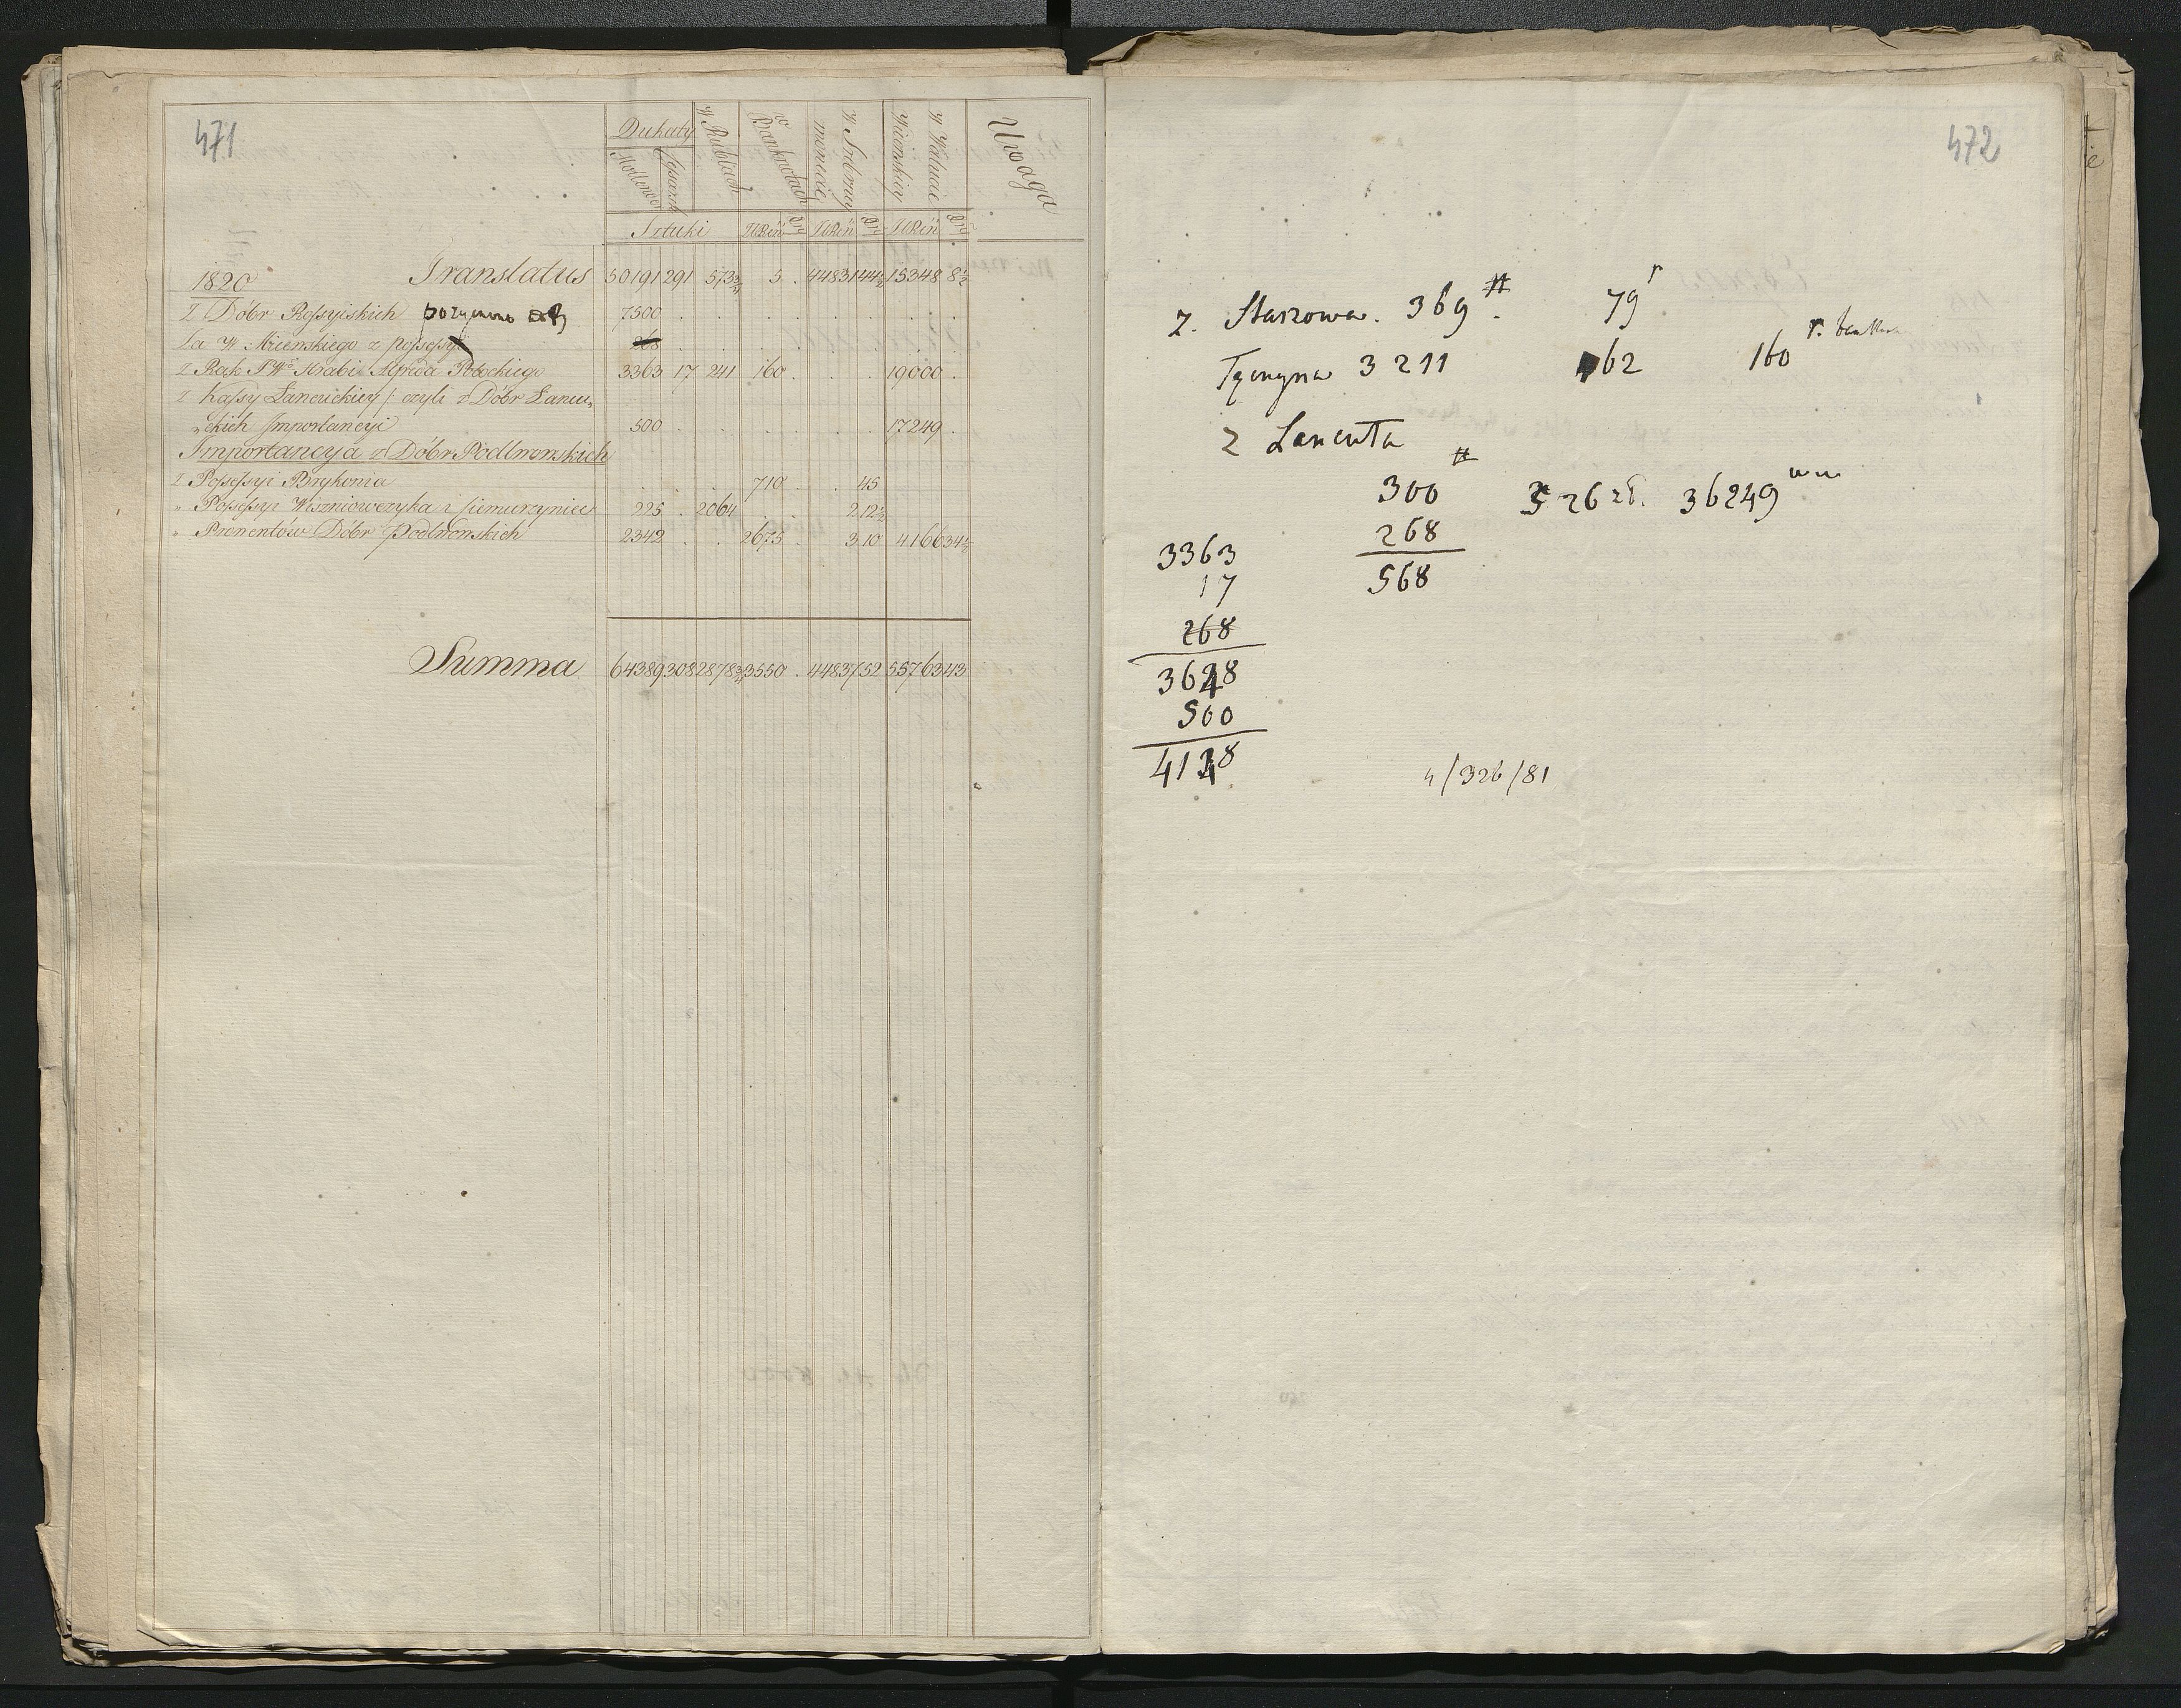 471
Dukaty
Hollender
Cesarsk
W Rublach
w Banknotach
W Srebrney monecie
W Walucie Wiedeńskiey
Uwaga
Sztuki ZłReń Xry ZłReń Xry ZłReń Xry
1820 Translatus 50191 291 573 3/4 5 . 44831 44 1/2 15348 8 1/2
Z Dóbr Rossyiskich pożyczone 7500
Za W Mierskiego z possessyi 268
Z Rak JWo Hrabi Alfreda Potockiego 3363 17 241 160 . . . 19000 .
Z Kassy Łancuckiey /: czyli z Dóbr Łancu„
„ckich Importancyi 500 . . . . . . 17249 .
Importancya z Dóbr Podlwowskich
Z Possessyi Brykonia 710 . . 45
„ Possessyi Wiszniowczyka i Siemurzyniec 225 . 2064 2 12 1/2
„ Prowentów Dóbr Podlwowskich 2342 . . 2675 . 3 10 4166 34 1/2
Summa 64389 308 2878 3/4 3550 . 44837 52 55763 43
472
z. Staszowa. 369 # 79 r
Tęczyna 3211 162 160 r. bankn
z Lancuta
#
300 326 zł. 36249 ww
268
568
3363
17
268
3648
500
4148
4/326/81